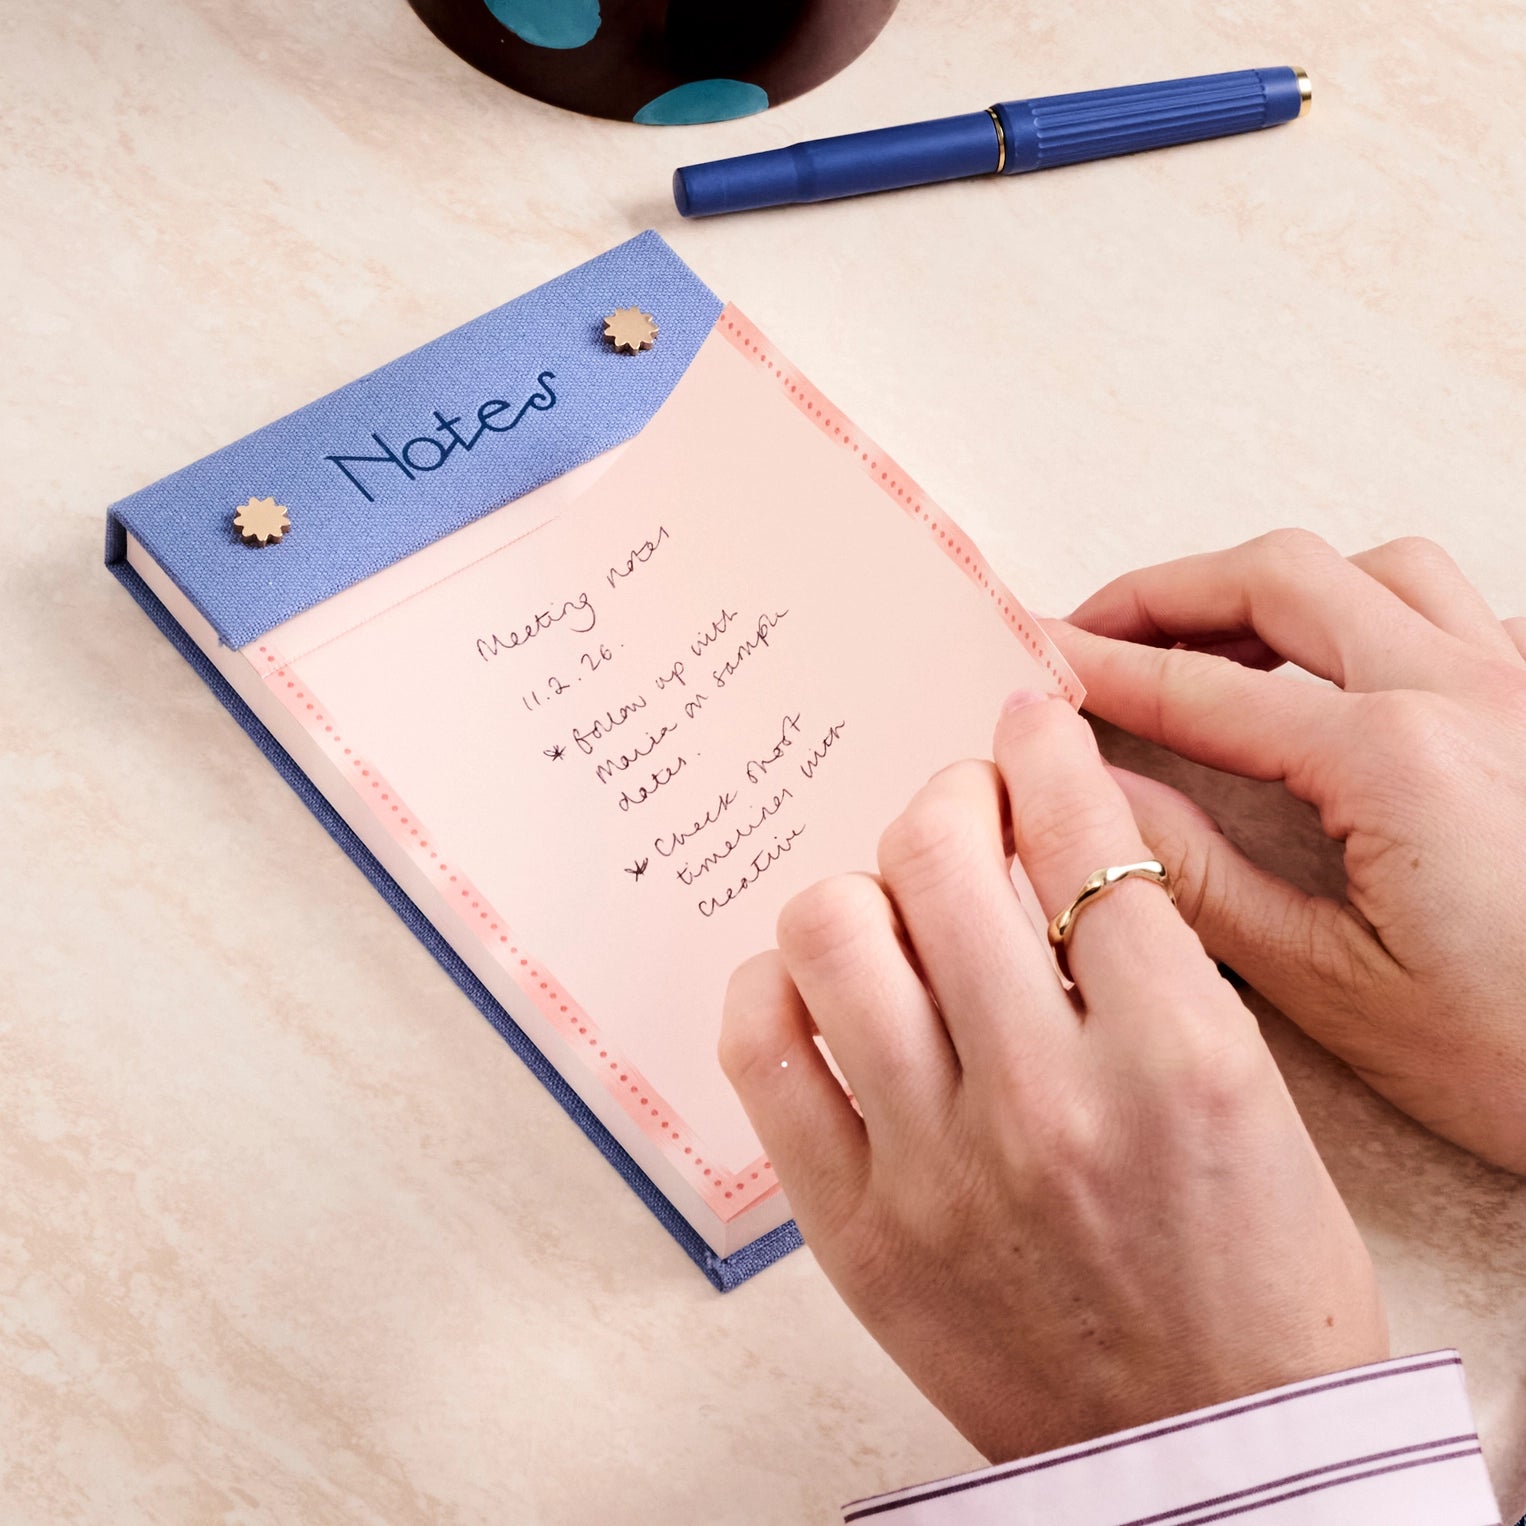 Notes
Meeting notes
11.2.26.
* follow up with
Maria on sample
dates.
* Check shoot
timelines with
creative